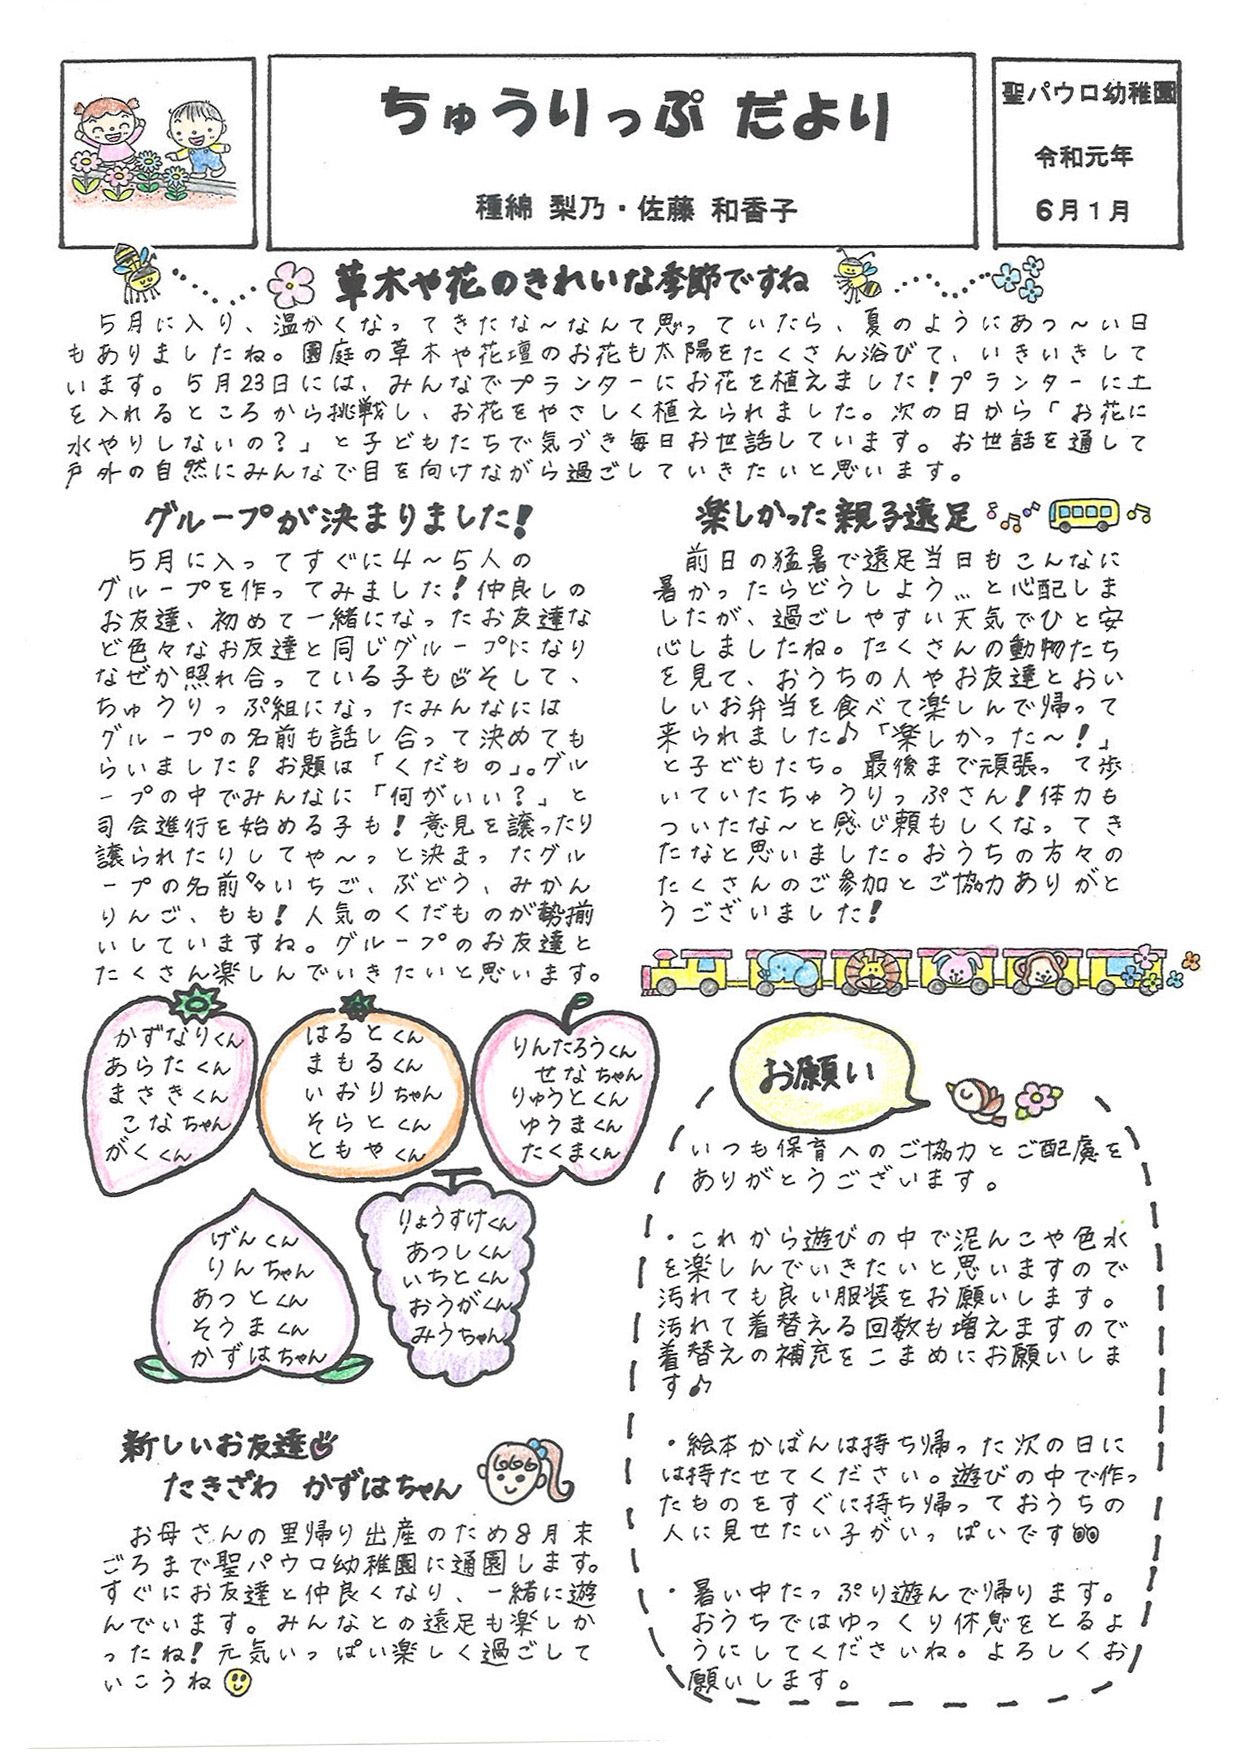 ちゅうりっぷ だより
種綿 梨乃・佐藤 和香子
聖パウロ幼稚園
令和元年
6月1月
草木や花のきれいな季節ですね
5月に入り、温かくなってきたな～なんて思っていたら、夏のようにあっ～い日
もありましたね。園庭の草木や花壇のお花も太陽をたくさん浴びて、いきいきして
います。5月23日には、みんなでプランターにお花を植えました!プランターに土
を入れるところから挑戦し、お花をやさしく植えられました。次の日から「お花に
水やりしないの?」と子どもたちで気づき毎日お世話しています。お世話を通して
戸外の自然にみんなで目を向けながら過ごしていきたいと思います。
グループが決まりました!
5月に入ってすぐに4～5人の
グループを作ってみました!仲良しの
お友達、初めて一緒になったお友達な
ど色々なお友達と同じグループになり
なぜか照れ合っている子も♡そして、
ちゅうりっぷ組になったみんなには
グループの名前も話し合って決めても
らいました!お題は「くだもの」。グル
ープの中でみんなに「何がいい?」と
司会進行を始める子も!意見を譲ったり
譲られたりしてや～っと決まったグル
ープの名前いちご、ぶどう、みかん
りんご、もも!人気のくだものが勢揃
いしていますね。グループのお友達と
たくさん楽しんでいきたいと思います。
楽しかった親子遠足
前日の猛暑で遠足当日もこんなに
暑かったらどうしよう…と心配しま
したが、過ごしやすい天気でひと安
心しましたね。たくさんの動物たち
を見て、おうちの人やお友達とおい
しいお弁当を食べて楽しんで帰って
来られました♪「楽しかった～!」
と子どもたち。最後まで頑張って歩
いていたちゅうりっぷさん!体力も
ついたな～と感じ頼もしくなってき
たなと思いました。おうちの方々の
たくさんのご参加とご協力ありがと
うございました!
かずなりくん
あらたくん
まさきくん
こなちゃん
がくくん
はるとくん
まもるくん
いおりちゃん
そらとくん
ともやくん
りんたろうくん
せなちゃん
りゅうとくん
ゆうまくん
たくまくん
げんくん
りんちゃん
あっとくん
そうまくん
かずはちゃん
りょうすけくん
あつしくん
いちとくん
おうがくん
みうちゃん
新しいお友達♡
たきざわ かずはちゃん
お母さんの里帰り出産のため8月末
ごろまで聖パウロ幼稚園に通園します。
すぐにお友達と仲良くなり、一緒に遊
んでいます。みんなとの遠足も楽しか
ったね!元気いっぱい楽しく過ごして
いこうね
お願い
いつも保育へのご協力とご配慮を
ありがとうございます。
・これから遊びの中で泥んこや色水
を楽しんでいきたいと思いますので
汚れても良い服装をお願いします。
汚れて着替える回数も増えますので
着替えの補充をこまめにお願いしま
す♪
・絵本かばんは持ち帰った次の日に
は持たせてください。遊びの中で作っ
たものをすぐに持ち帰っておうちの
人に見せたい子がいっぱいです
・暑い中たっぷり遊んで帰ります。
おうちではゆっくり休息をとるよ
うにしてくださいね。よろしくお
願いします。